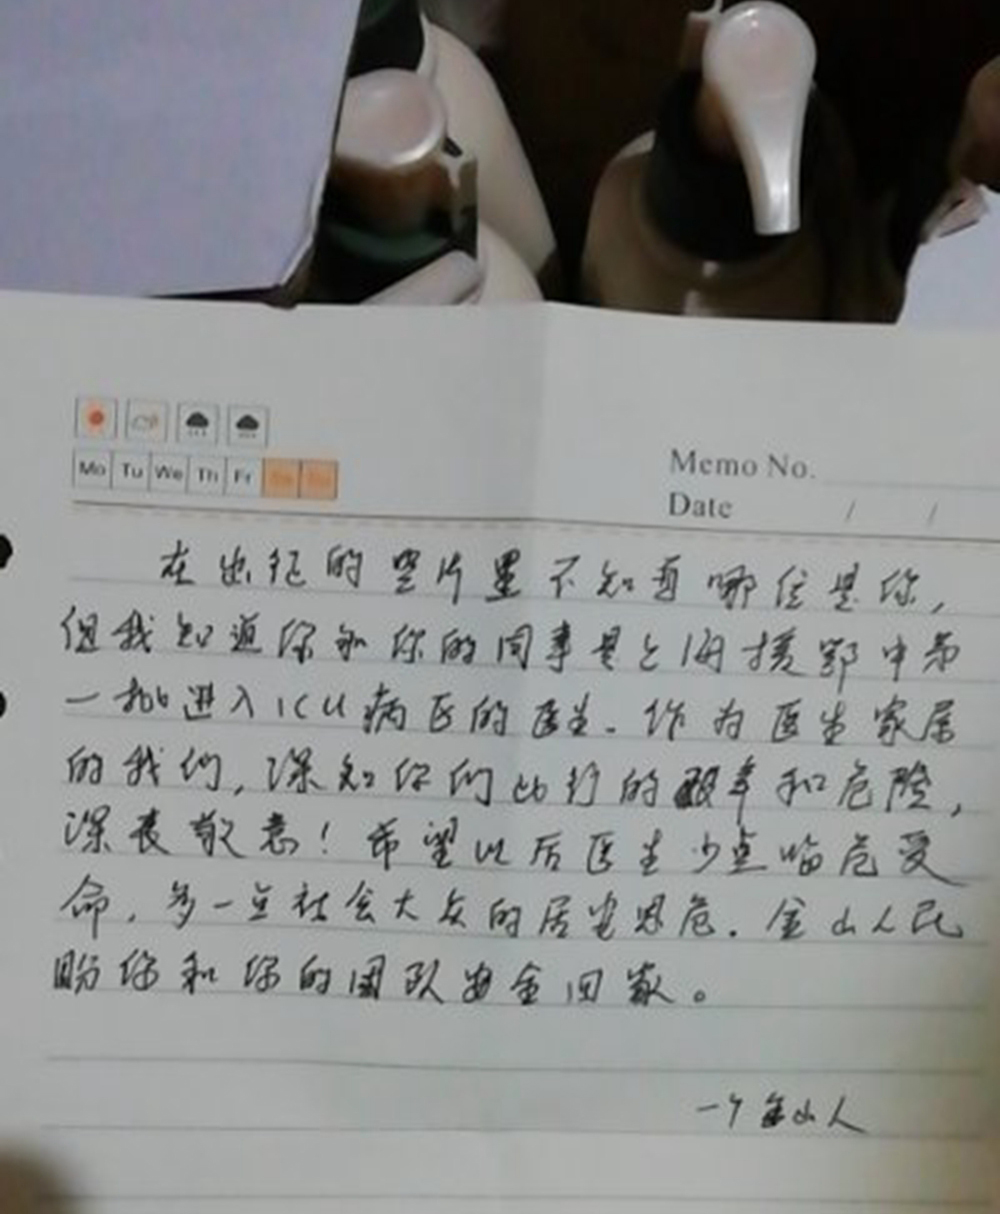 Mo Tu We Th Fr Sa Su
Memo No.
Date / /
在出征的照片里不知道哪位是你,
但我知道你和你的同事是上海援鄂中第
一批进入ICU病区的医生.作为医生家属
的我们,深知你们此行的艰辛和危险,
深表敬意!希望以后医生少点临危受
命,多一点社会大众的居安思危.金山人民
盼你和你的团队安全回家。
一个金山人